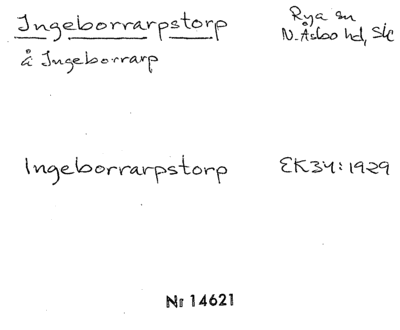 Ingeborrarpstorp
Rya sn
N. Åsbo hd, Sk
å Ingeborrarp
Ingeborrarpstorp
EK34:1929
Nr 14621